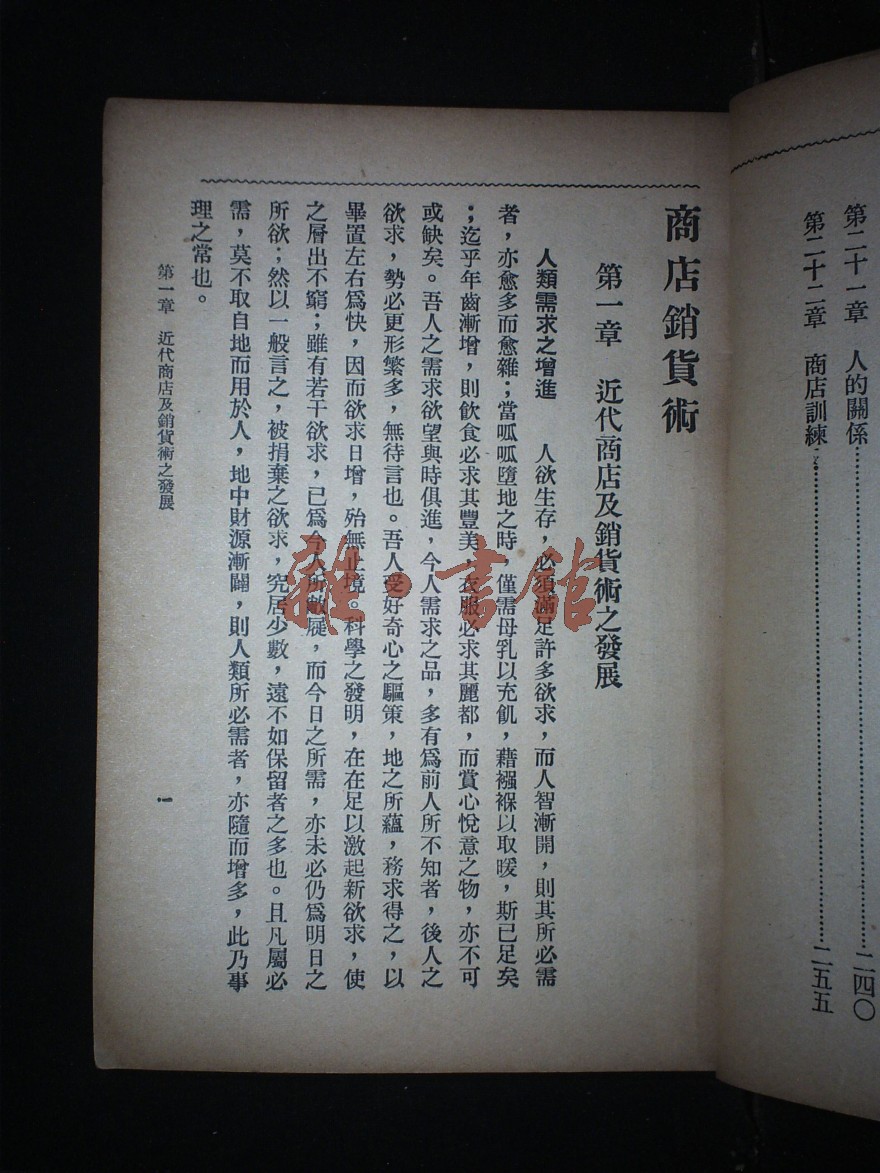 第二十一章　人的關係……………二四〇
第二十二章　商店訓練……………二五五
商店銷貨術
第一章　近代商店及銷貨術之發展
人類需求之增進　人欲生存，必須滿足許多欲求，而人智漸開，則其所必需
者，亦愈多而愈雜；當呱呱墮地之時，僅需母乳以充飢，藉襁褓以取暖，斯已足矣
；迄乎年齒漸增，則飲食必求其豐美，衣服必求其麗都，而賞心悅意之物，亦不可
或缺矣。吾人之需求欲望與時俱進，今人需求之品，多有爲前人所不知者，後人之
欲求，勢必更形繁多，無待言也。吾人受好奇心之驅策，地之所蘊，務求得之，以
畢置左右爲快，因而欲求日增，殆無止境。科學之發明，在在足以激起新欲求，使
之層出不窮；雖有若干欲求，已爲今人所敝屣，而今日之所需，亦未必仍爲明日之
所欲；然以一般言之，被捐棄之欲求，究居少數，遠不如保留者之多也。且凡屬必
需，莫不取自地而用於人，地中財源漸闢，則人類所必需者，亦隨而增多，此乃事
理之常也。
第一章　近代商店及銷貨術之發展
一
雜·書館